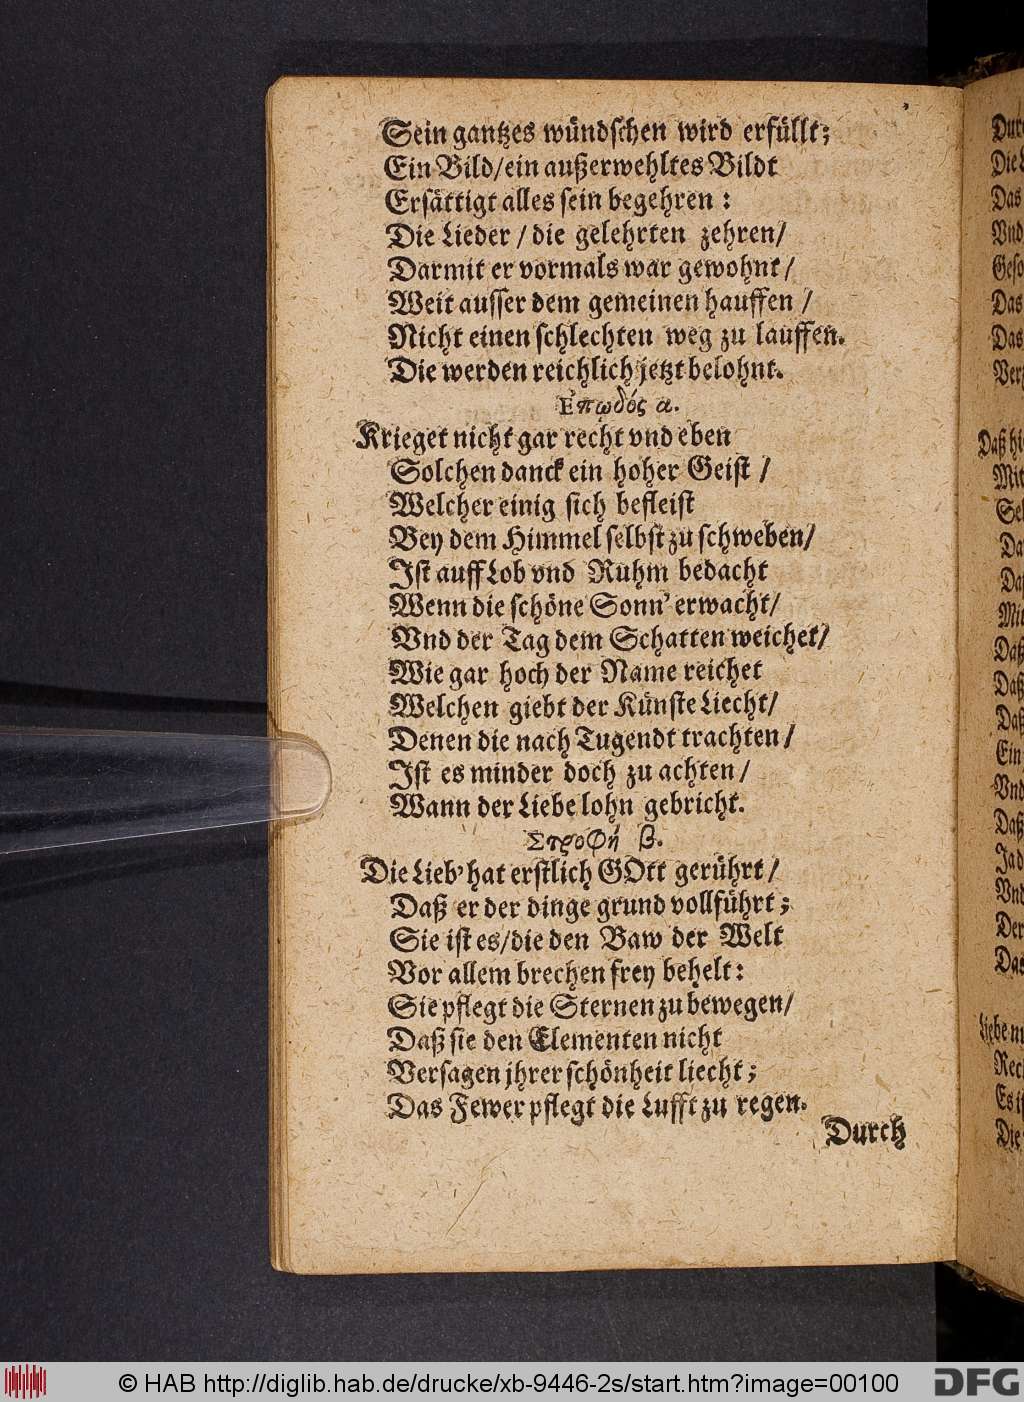 Sein gantzes wündschen wird erfüllt;
Ein Bild/ein außerwehltes Bildt
Ersättigt alles sein begehren:
Die Lieder / die gelehrten zehren/
Darmit er vormals war gewohnt /
Weit ausser dem gemeinen hauffen /
Nicht einen schlechten weg zu lauffen.
Die werden reichlich jetzt belohnt.
Ἐπῳδός α.
Krieget nicht gar recht vnd eben
Solchen danck ein hoher Geist /
Welcher einig sich befleist
Bey dem Himmel selbst zu schweben/
Ist auff Lob vnd Ruhm bedacht
Wenn die schöne Sonn' erwacht/
Vnd der Tag dem Schatten weichet/
Wie gar hoch der Name reichet
Welchen giebt der Künste Liecht/
Denen die nach Tugendt trachten/
Ist es minder doch zu achten/
Wann der Liebe lohn gebricht.
Στροφή β.
Die Lieb' hat erstlich GOtt gerührt/
Daß er der dinge grund vollführt;
Sie ist es/die den Baw der Welt
Vor allem brechen frey behelt:
Sie pflegt die Sternen zu bewegen/
Daß sie den Elementen nicht
Versagen jhrer schönheit liecht;
Das Fewer pflegt die Lufft zu regen.
Durch
Die
Das
Vnd
Das
Das
Mit
Daß
Daß
Daß
Ein
Vnd
Daß
Vnd
Der
Das
Die
© HAB http://diglib.hab.de/drucke/xb-9446-2s/start.htm?image=00100
DFG